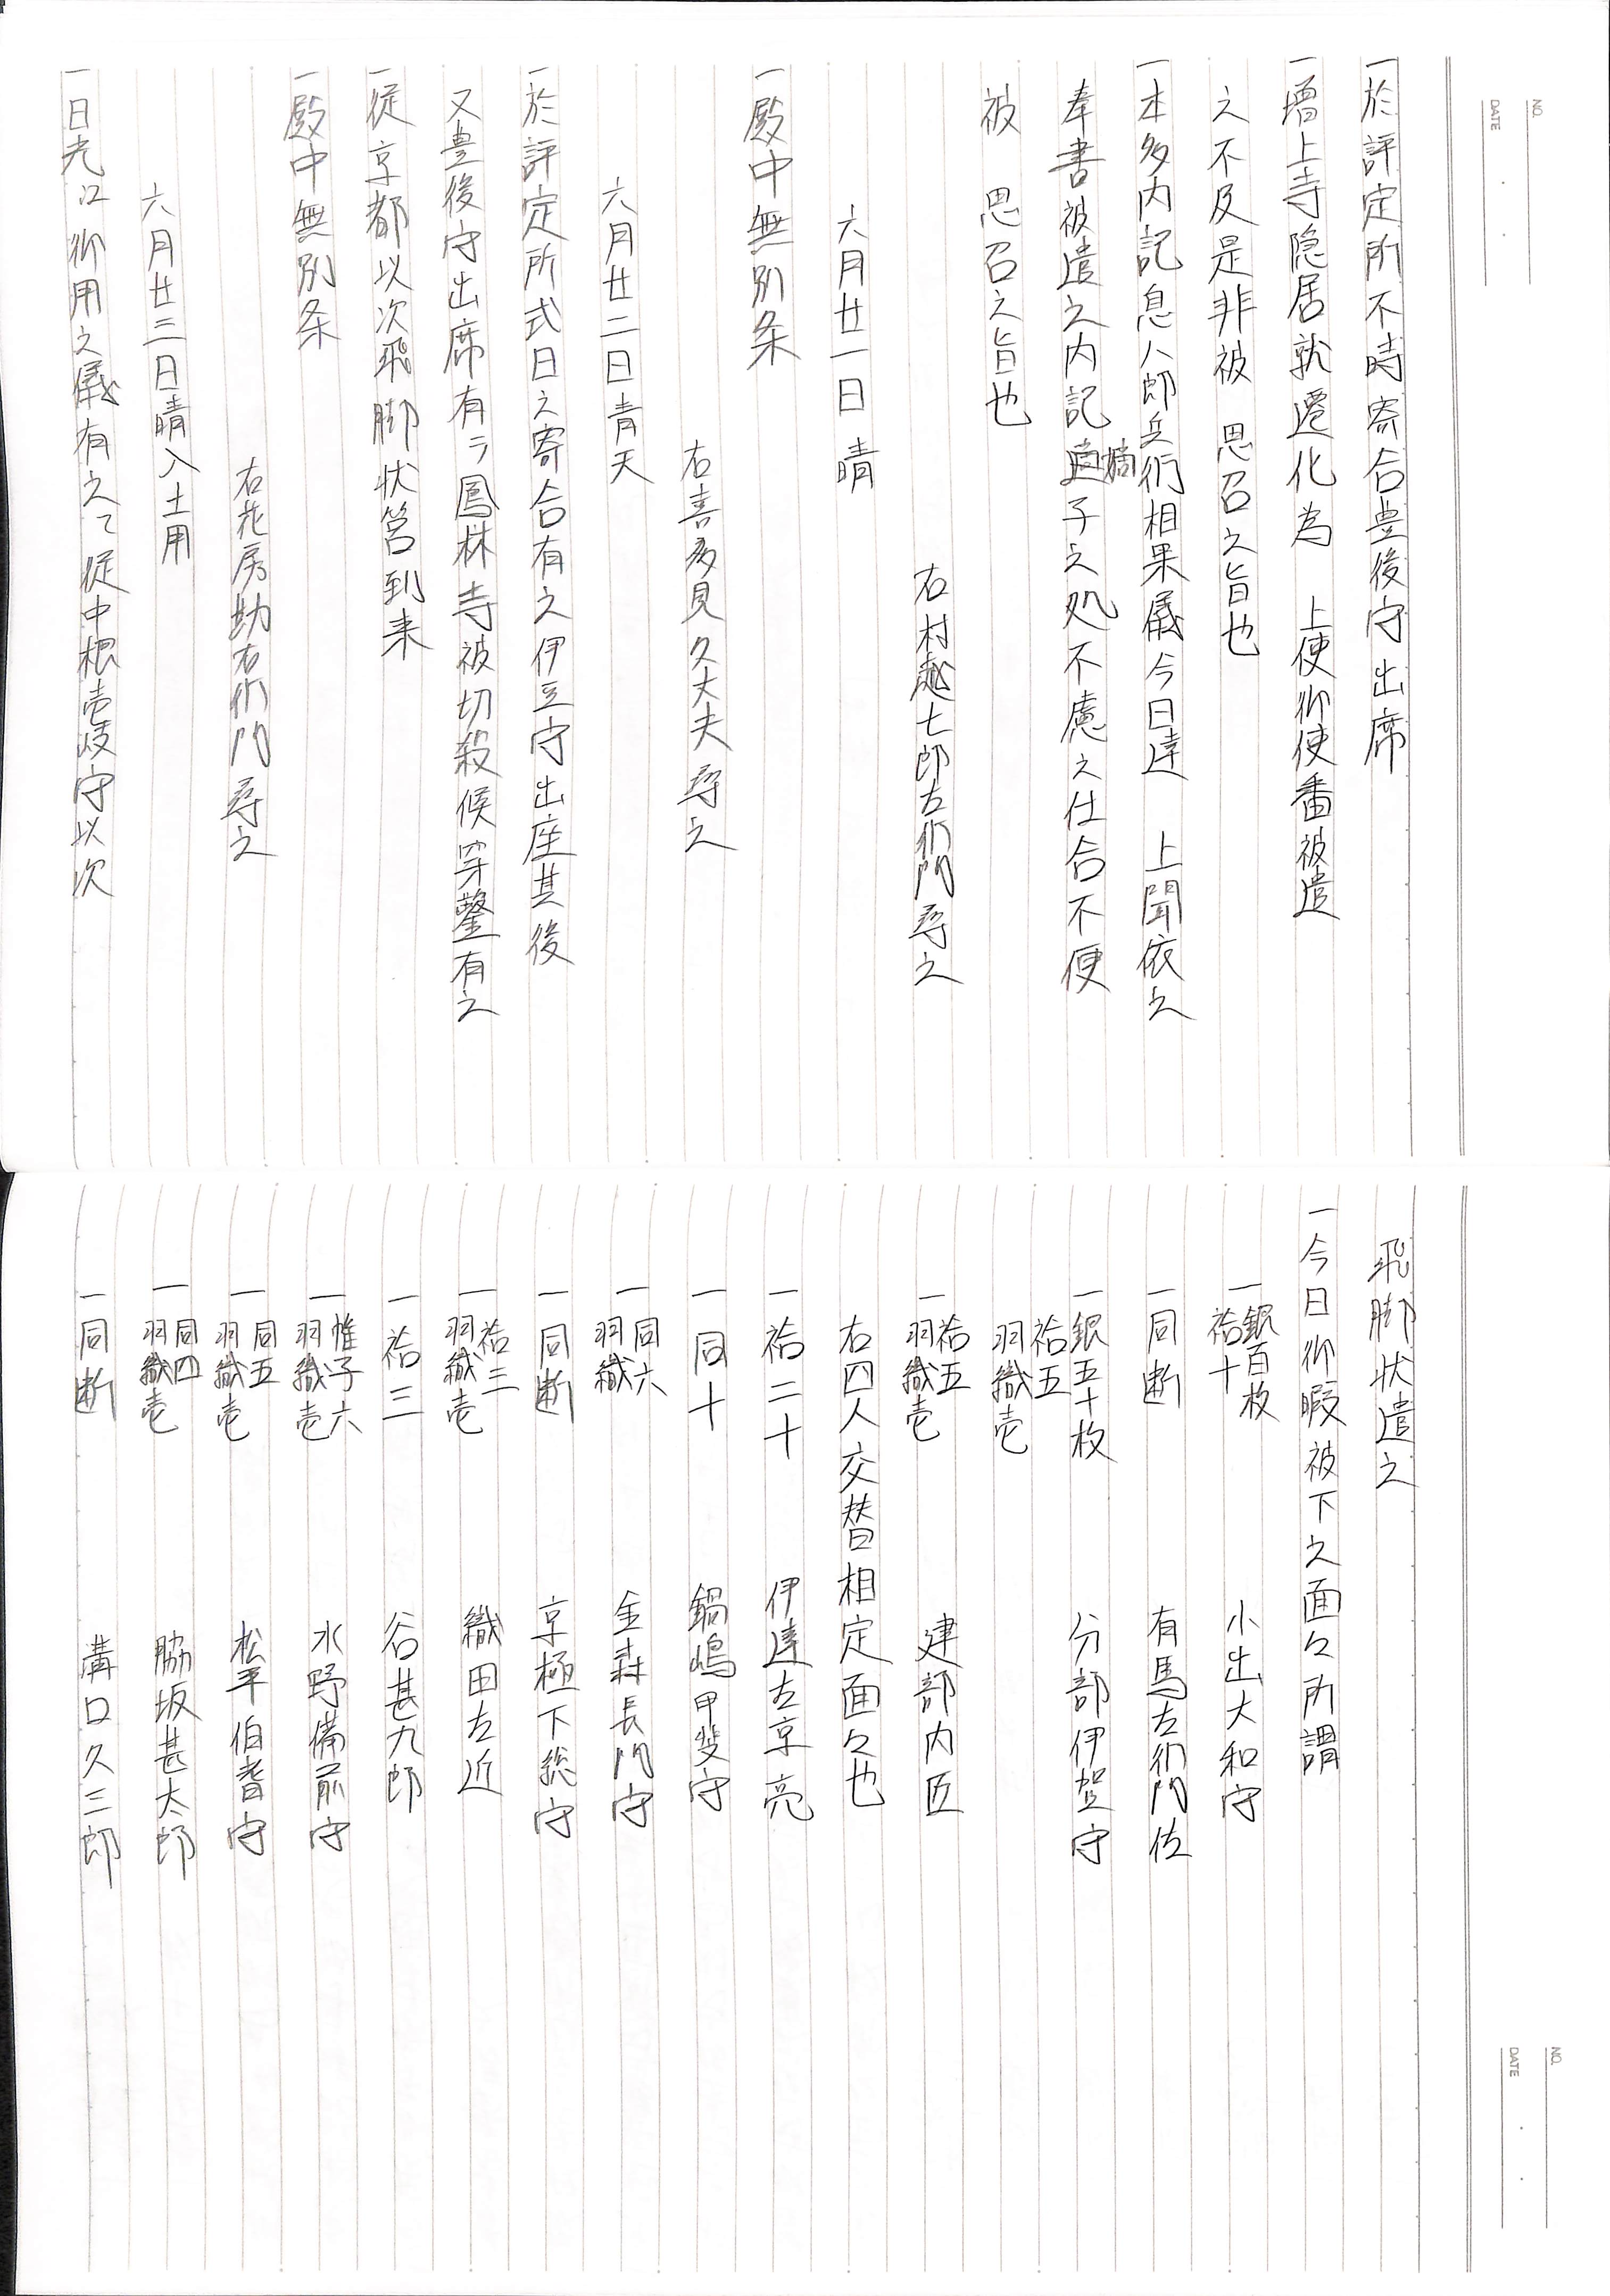 NO.
DATE
一於評定所不時寄合豊後守出席
一増上寺隠居就遷化為　上使御使番被遣
之不及是非被　思召之旨也
一本多内記息八郎兵衛相果儀今日達　上聞依之
奉書被遣之内記嫡子之処不慮之仕合不便
被　思召之旨也
右村越七郎左衛門尋之
六月廿一日　晴
一殿中無別条
右喜多見久大夫尋之
六月廿二日青天
一於評定所式日之寄合有之伊豆守出座其後
又豊後守出席有テ鳳林寺被切殺候穿鑿有之
一従京都以次飛脚状筥到来
一殿中無別条
右花房勘右衛門尋之
六月廿三日晴入土用
一日光江御用之儀有之て従中根壱岐守以次
NO.
DATE
飛脚状遣之
一今日御暇被下之面々所謂
一銀百枚 袷十　小出大和守
一同断　有馬左衛門佐
一銀五十枚 袷五　分部伊賀守
羽織壱
一袷五 羽織壱　建部内匠
右四人交替相定面々也
一袷二十　伊達左京亮
一同十　鍋嶋甲斐守
一同六 羽織　金森長門守
一同断　京極下総守
一袷三 羽織壱　織田左近
一袷三　谷甚九郎
一帷子六 羽織壱　水野備前守
一同五 羽織壱　松平伯耆守
一同四 羽織壱　脇坂甚太郎
一同断　溝口久三郎